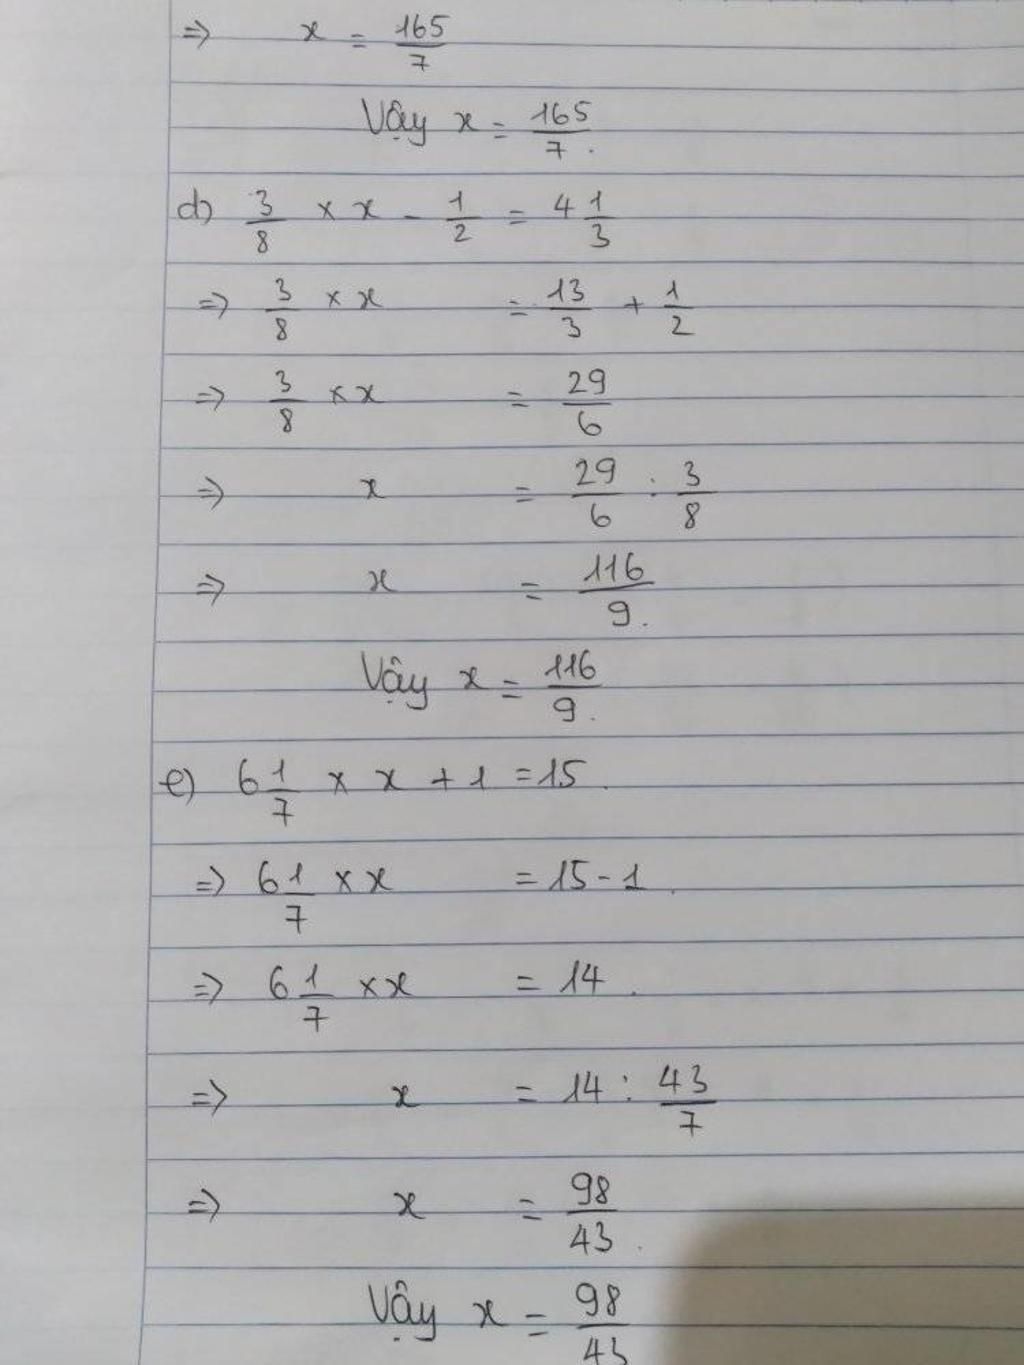 => x = 165/7
Vậy x = 165/7.
d) 3/8 × x - 1/2 = 4 1/3
=> 3/8 × x = 13/3 + 1/2
=> 3/8 × x = 29/6
=> x = 29/6 : 3/8
=> x = 116/9.
Vậy x = 116/9.
e) 6 1/7 × x + 1 = 15.
=> 6 1/7 × x = 15 - 1.
=> 6 1/7 × x = 14.
=> x = 14 : 43/7
=> x = 98/43.
Vậy x = 98/43